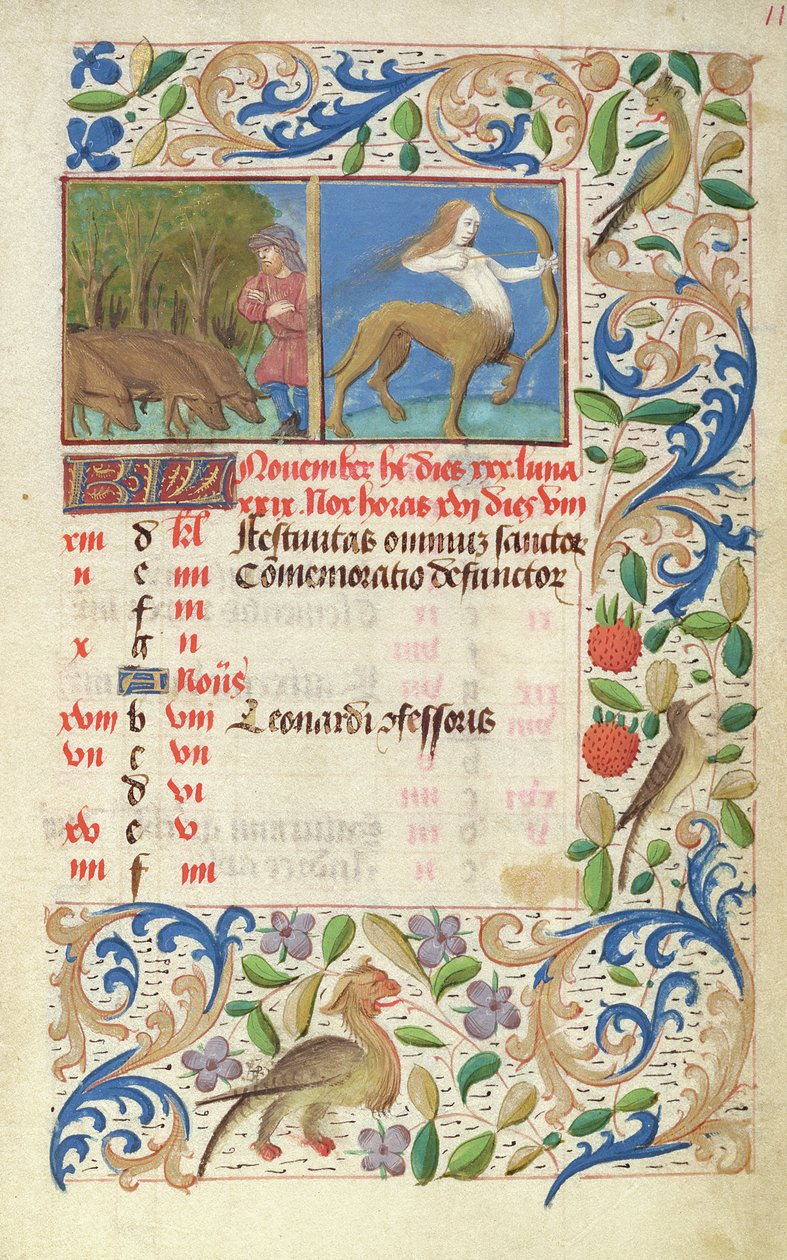 11
KL Nouember ht dies xxx luna
xxix. Nox horas xvj dies viii
xiii d kl Festiuitas omniuz sanctor
n e iiii Comemoratio defunctor
f iii
x g ii
A Nonis
xviii b viii Leonardi ɔfessoris
vii c vii
d vi
xv e v
iiii f iiii